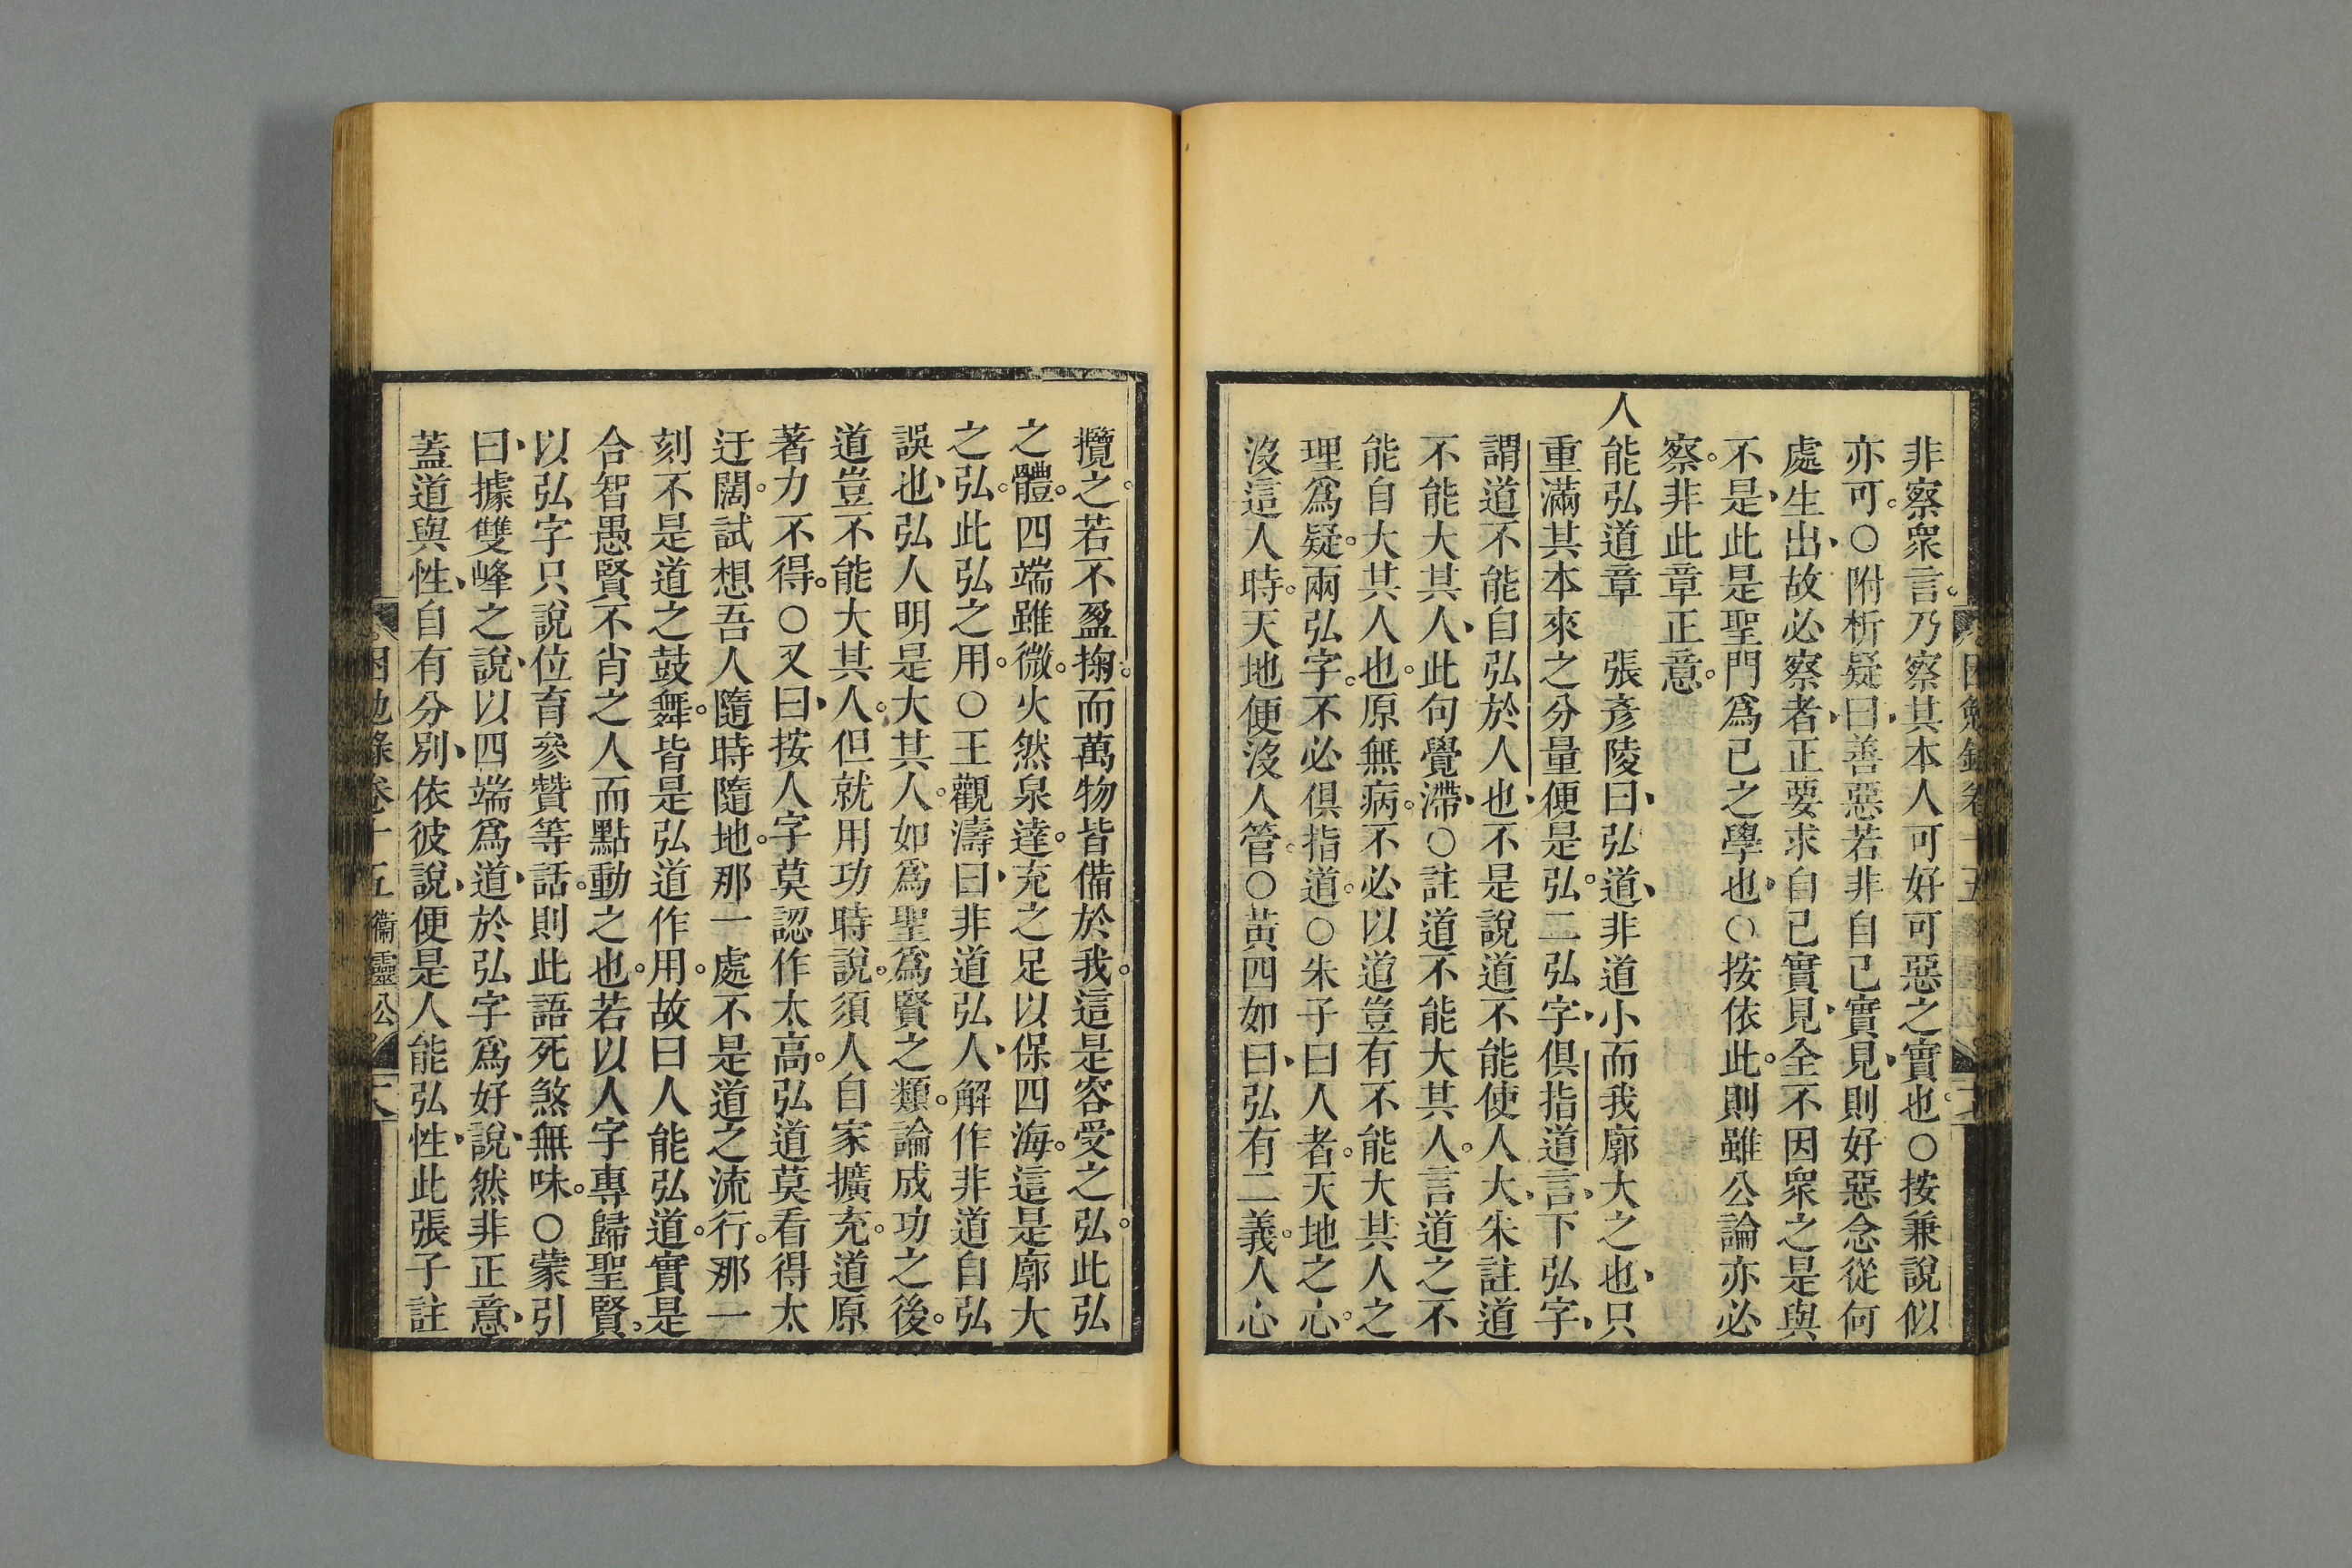 非察衆言乃察其本人可好可惡之實也○按兼說似
亦可○附析疑曰善惡若非自己實見則好惡念從何
處生出故必察者正要求自己實見全不因衆之是與
不是此是聖門爲已之學也○按依此則雖公論亦必
察非此章正意
人能弘道章　張彥陵曰弘道非道小而我廓大之也只
重滿其本來之分量便是弘二弘字俱指道言下弘字
謂道不能自弘於人也不是說道不能使人大朱註道
不能大其人此句覺滯○註道不能大其人言道之不
能自大其人也原無病不必以道豈有不能大其人之
理爲疑兩弘字不必俱指道○朱子曰人者天地之心
沒這人時天地便沒人管○黃四如曰弘有二義人心
攬之若不盈掬而萬物皆備於我這是容受之弘此弘
之體四端雖微火然泉達充之足以保四海這是廓大
之弘此弘之用○王觀濤曰非道弘人解作非道自弘
誤也弘人明是大其人如爲聖爲賢之類論成功之後
道豈不能大其人但就用功時說須人自家擴充道原
著力不得○又曰按人字莫認作太高弘道莫看得太
迂闊試想吾人隨時隨地那一處不是道之流行那一
刻不是道之鼓舞皆是弘道作用故曰人能弘道實是
合智愚賢不肖之人而點動之也若以人字專歸聖賢
以弘字只說位育參贊等話則此語死煞無味○蒙引
曰據雙峰之說以四端爲道於弘字爲好說然非正意
蓋道與性自有分別依彼說便是人能弘性此張子註
困勉錄卷十五 衞靈公